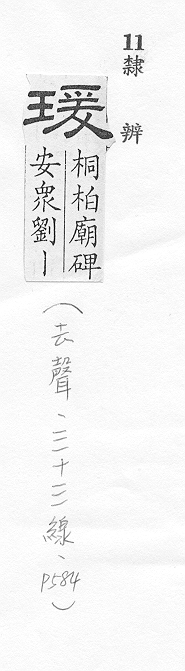 11隸辨
瑗
桐柏廟碑
安衆劉丨
（去聲、三十三線、P584）